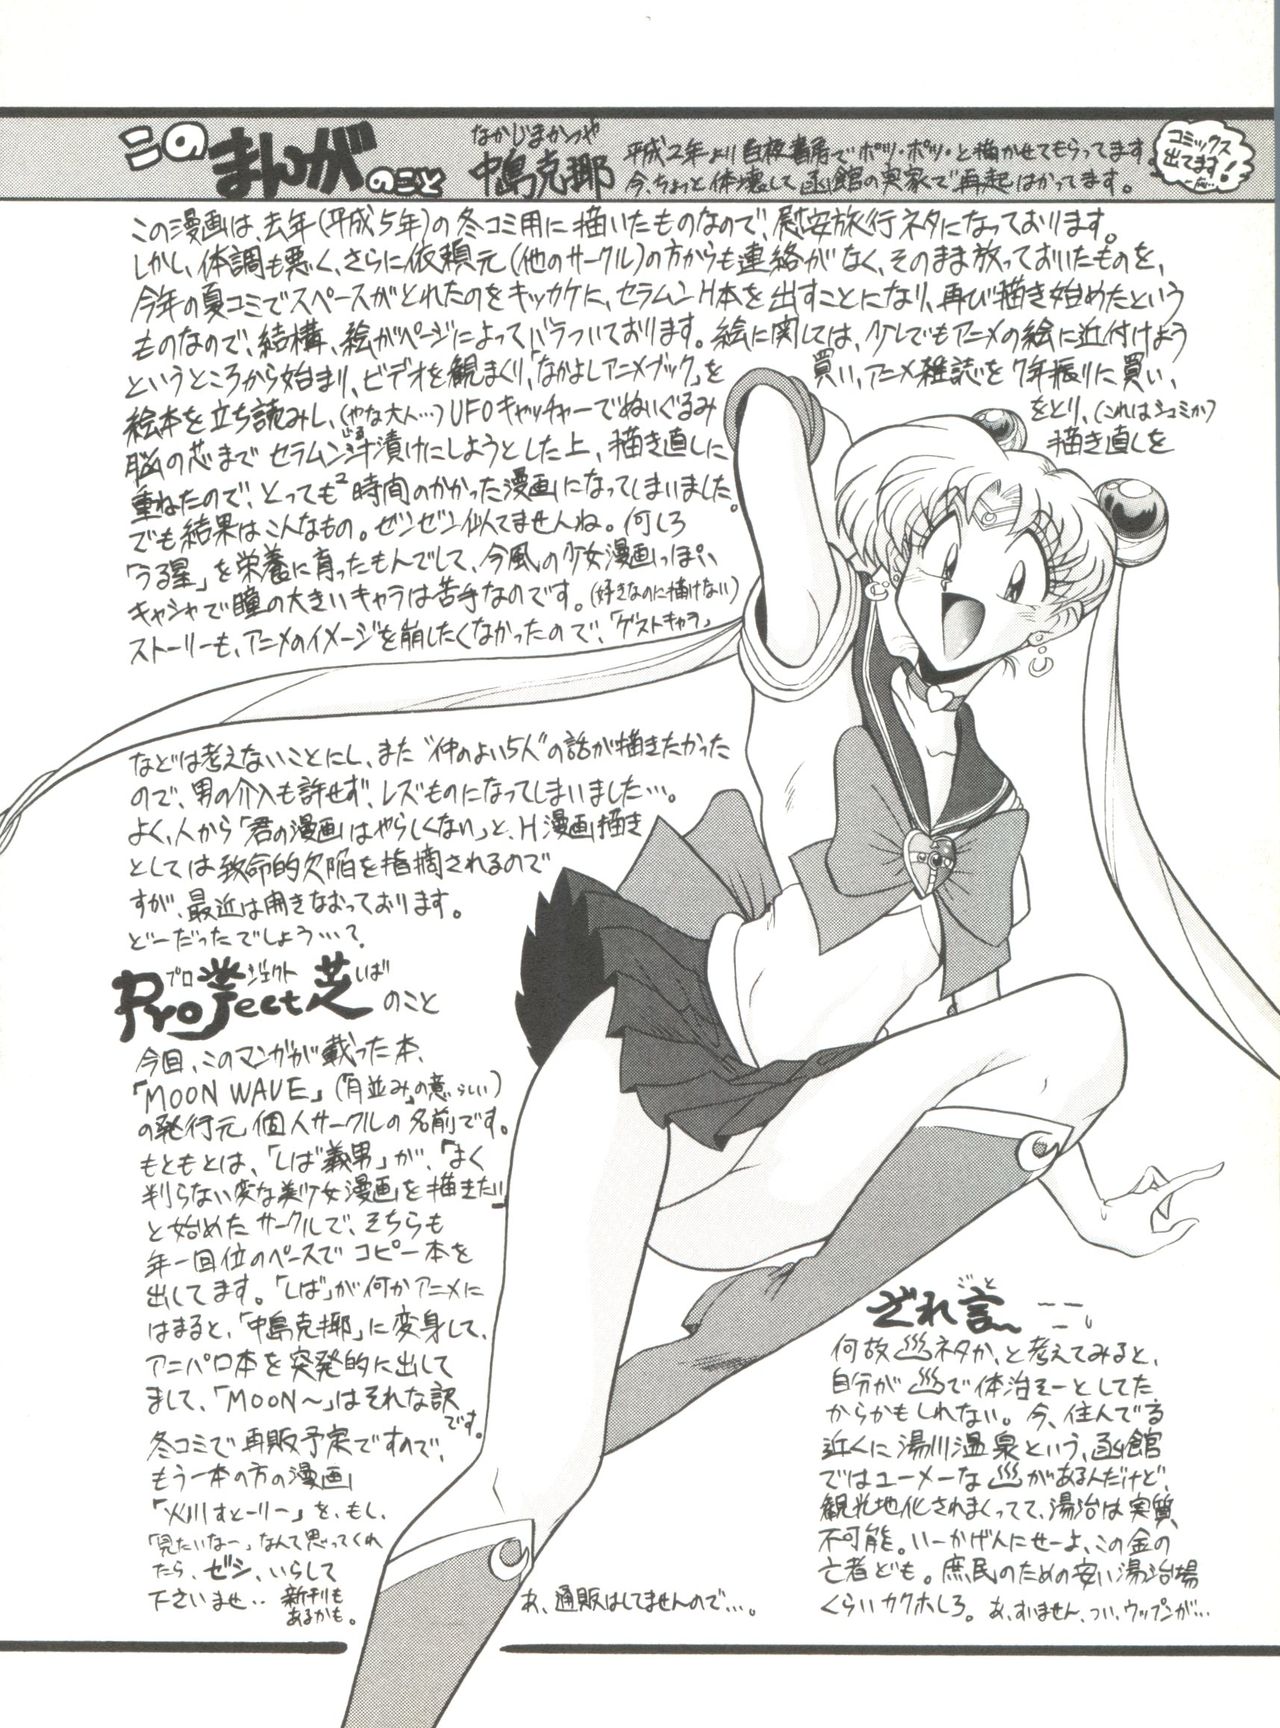 このまんがのこと
なかじまかつや
中島克耶
平成2年より白夜書房でポツ・ポツ・と描かせてもらってます
今、ちょっと体壊して函館の実家で再起はかってます。
コミックス
出てます!
この漫画は、去年(平成5年)の冬コミ用に描いたものなので、慰安旅行ネタになっております。
しかし、体調も悪く、さらに依頼元(他のサークル)の方からも連絡がなく、そのまま放っておいたものを、
今年の夏コミでスペースがとれたのをキッカケに、セラムンH本を出すことになり、再び描き始めたという
ものなので、結構、絵がページによってバラついております。絵に関しては、少しでもアニメの絵に近付けよう
というところから始まり、ビデオを観まくり、「なかよしアニメブック」を買い、アニメ雑誌を7年振りに買い、
絵本を立ち読みし、(やな大人…)UFOキャッチャーでぬいぐるみをとり、(これはシュミか)
脳の芯までセラムン汁漬けにしようとした上、描き直しに描き直しを
じる
重ねたので、とっても2時間のかかった漫画になってしまいました。
でも結果はこんなもの。ゼンゼン似てませんね。何しろ
「うる星」を栄養に育ったもんでして、今風の少女漫画っぽい、
キャシャで瞳の大きいキャラは苦手なのです。(好きなのに描けない)
ストーリーも、アニメのイメージを崩したくなかったので、「ゲストキャラ」
などは考えないことにし、また“仲のよい5人”の話が描きたかった
ので、男の介入も許せず、レズものになってしまいました…。
よく、人から「君の漫画はやらしくない」と、H漫画描き
としては致命的欠陥を指摘されるので
すが、最近は開きなおっております。
どーだったでしょう…?
プロジェクトしば
Project芝のこと
今回、このマンガが載った本、
「MOON WAVE」(「月並み」の意らしい)
の発行元、個人サークルの名前です。
もともとは、「しば義男」が、「まく
判らない変な美少女漫画を描きたい」
と始めたサークルで、そちらも
年一回位のペースでコピー本を
出してます。「しば」が何かアニメに
はまると、「中島克耶」に変身して、
アニパロ本を突発的に出して
まして、「MOON〜」はそれな訳
です。
冬コミで再販予定ですので、
もう一本の方の漫画
すとーりー」を、もし、
「見たいなー」なんて思ってくれ
たら、ゼシ、いらして
下さいませ‥
新刊も
あるかも。
あ、通販はしてませんので…。
ざれ言〜
ごと
何故♨ネタか、と考えてみると、
自分が♨で体治そーとしてた
からかもしれない。今、住んでる
近くに湯川温泉という、函館
ではユーメーな♨があるんだけど、
観光地化されまくってて、湯治は実質
不可能。いーかげんにせーよ、この金の
亡者ども。庶民のための安い湯治場
くらいカクホしろ。あ、すいません、つい、ウップンが…